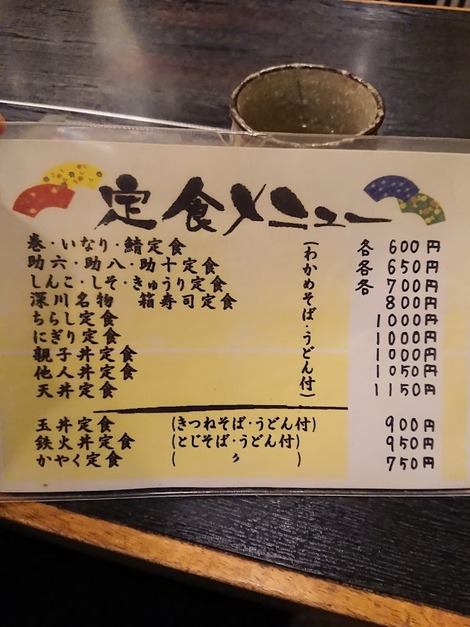 定食メニュー
巻・いなり・鯖定食 各 600円
助六・助八・助十定食 各 650円
しんこ・しそ・きゅうり定食 各 700円
深川名物 箱寿司定食 800円
ちらし定食 1000円
にぎり定食 1000円
親子丼定食 1000円
他人丼定食 1050円
天丼定食 1150円
(わかめそば・うどん付)
玉丼定食 (きつねそば・うどん付) 900円
鉄火丼定食 (とじそば・うどん付) 950円
かやく定食 ( 〃 ) 750円